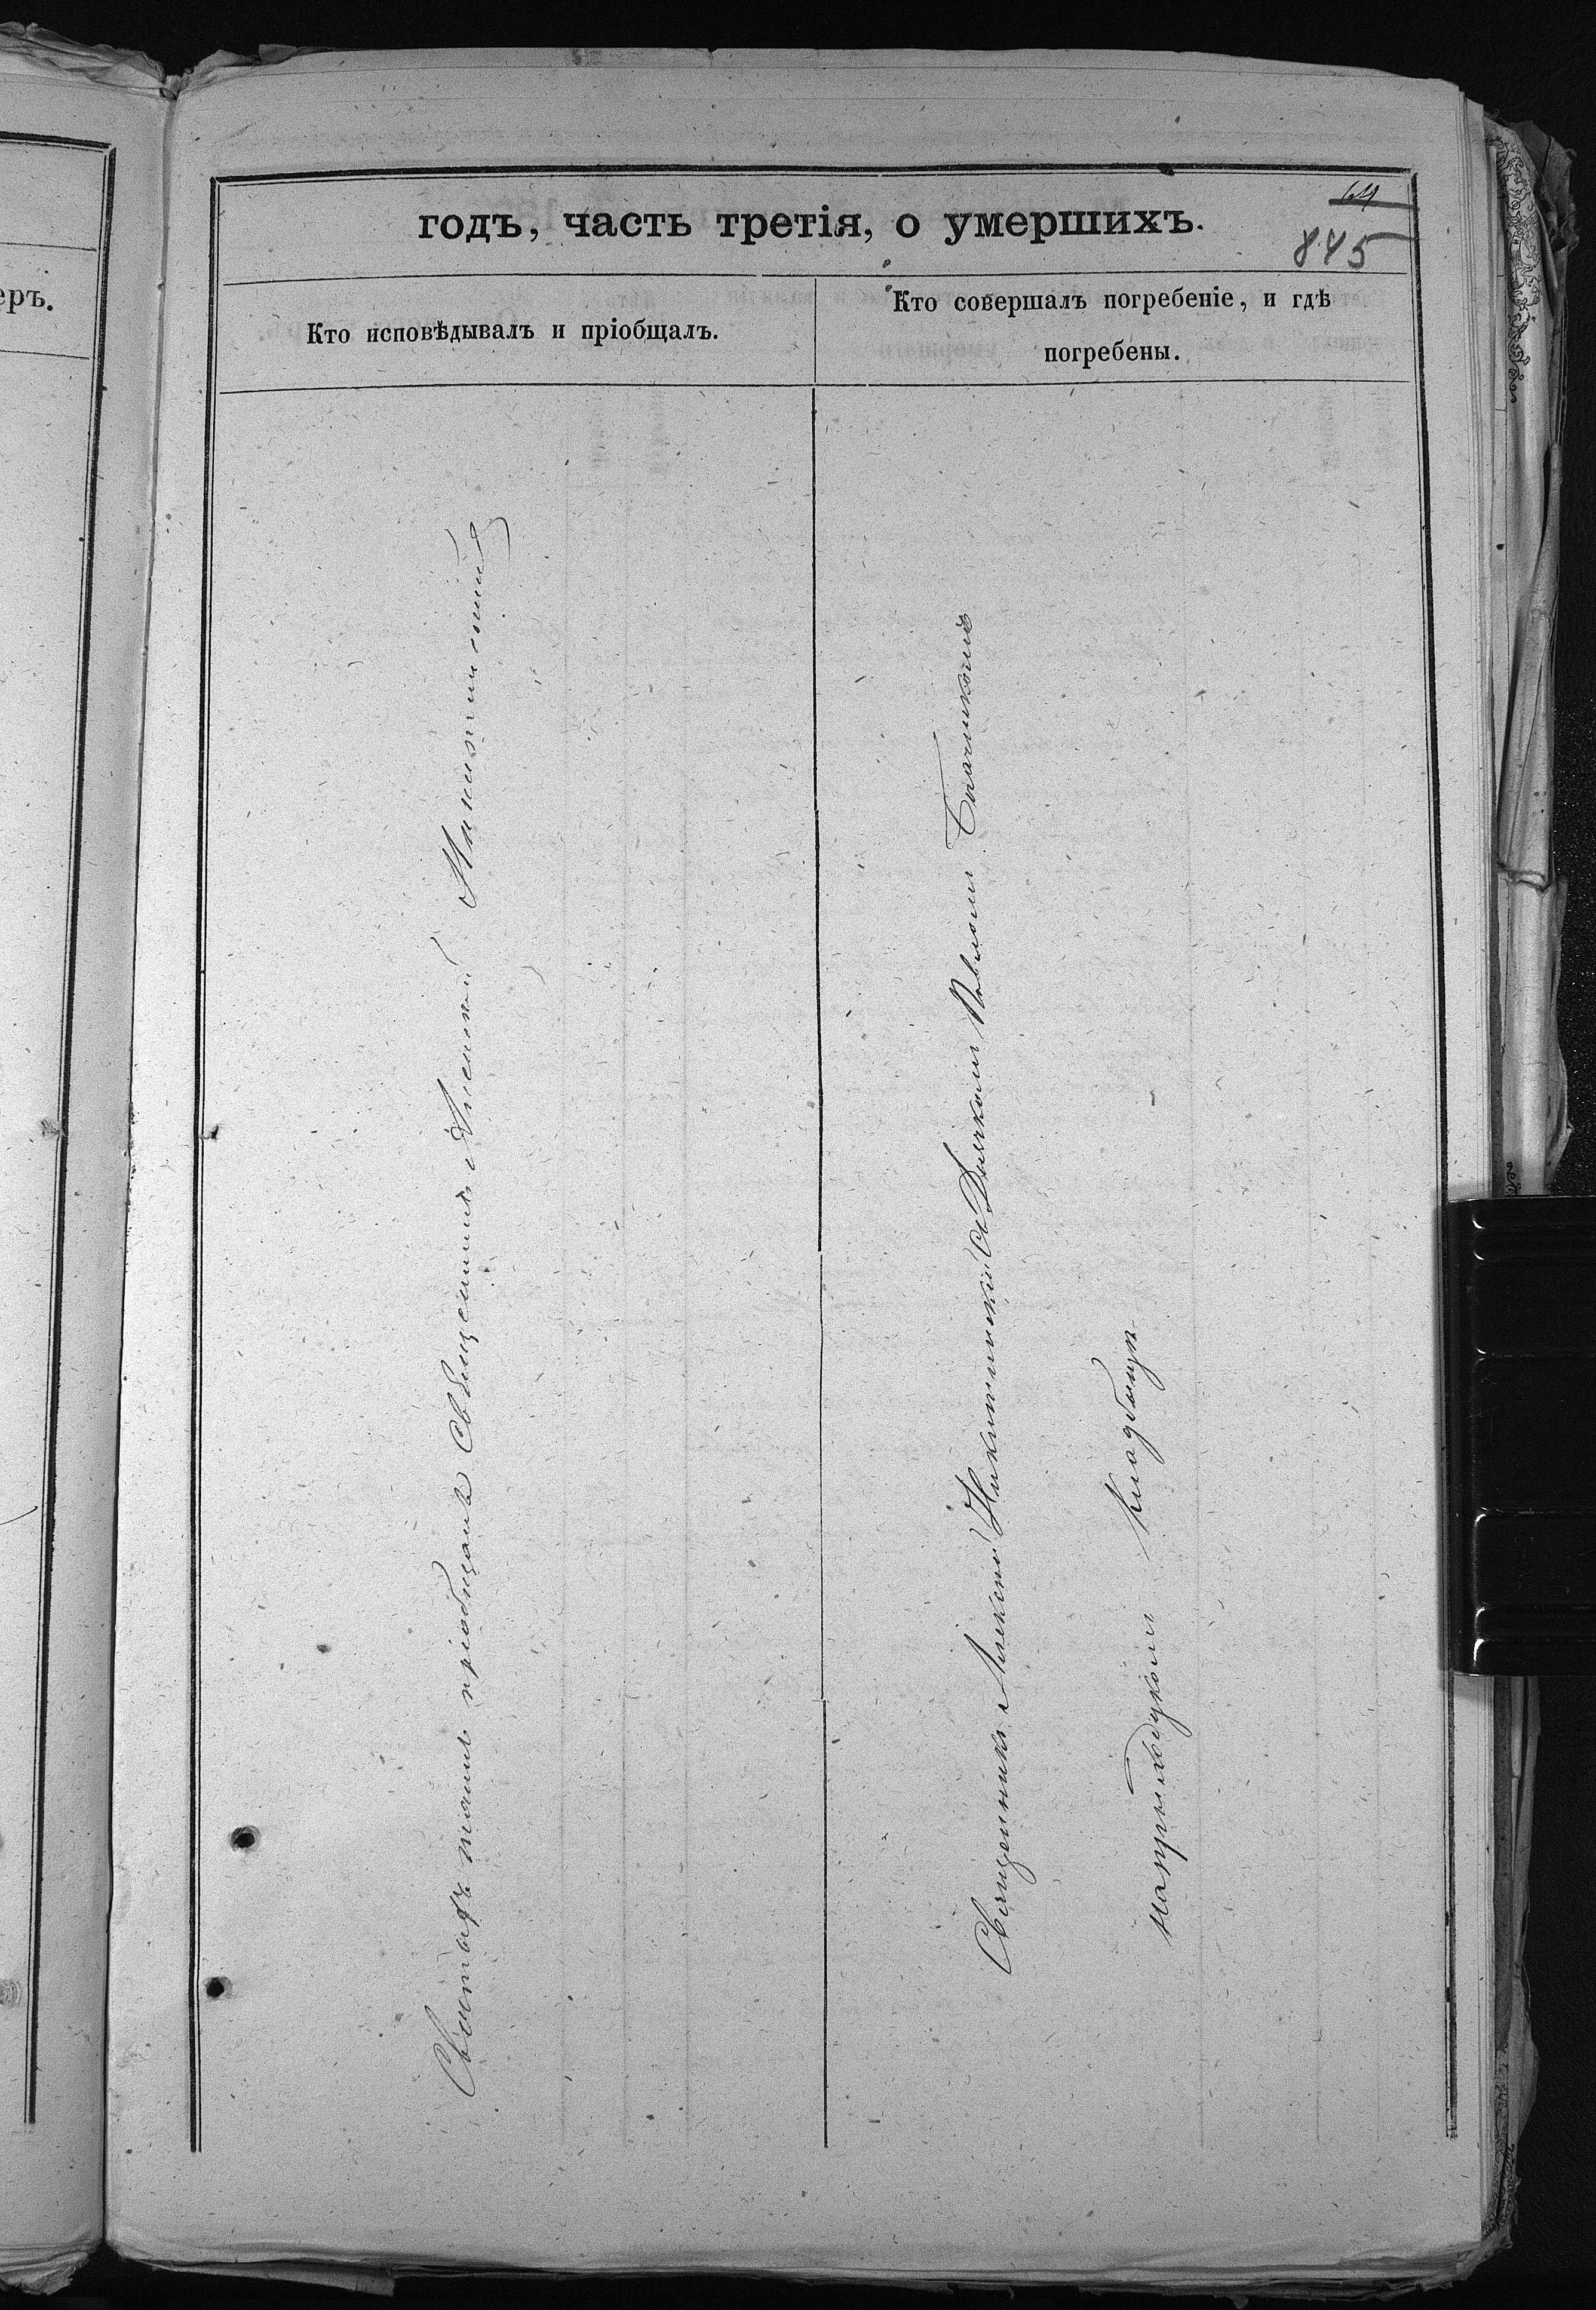 еръ.
64
годъ, часть третія, о умершихъ.
845
Кто исповѣдывалъ и пріобщалъ.
Кто совершалъ погребеніе, и гдѣ
погребены.
Святыхъ таинъ пріобщалъ Священникъ Алексий Никитинский
Священникъ Алексий Никитинский съ Дьячкомъ Павломъ
на приходскомъ кладбищѣ